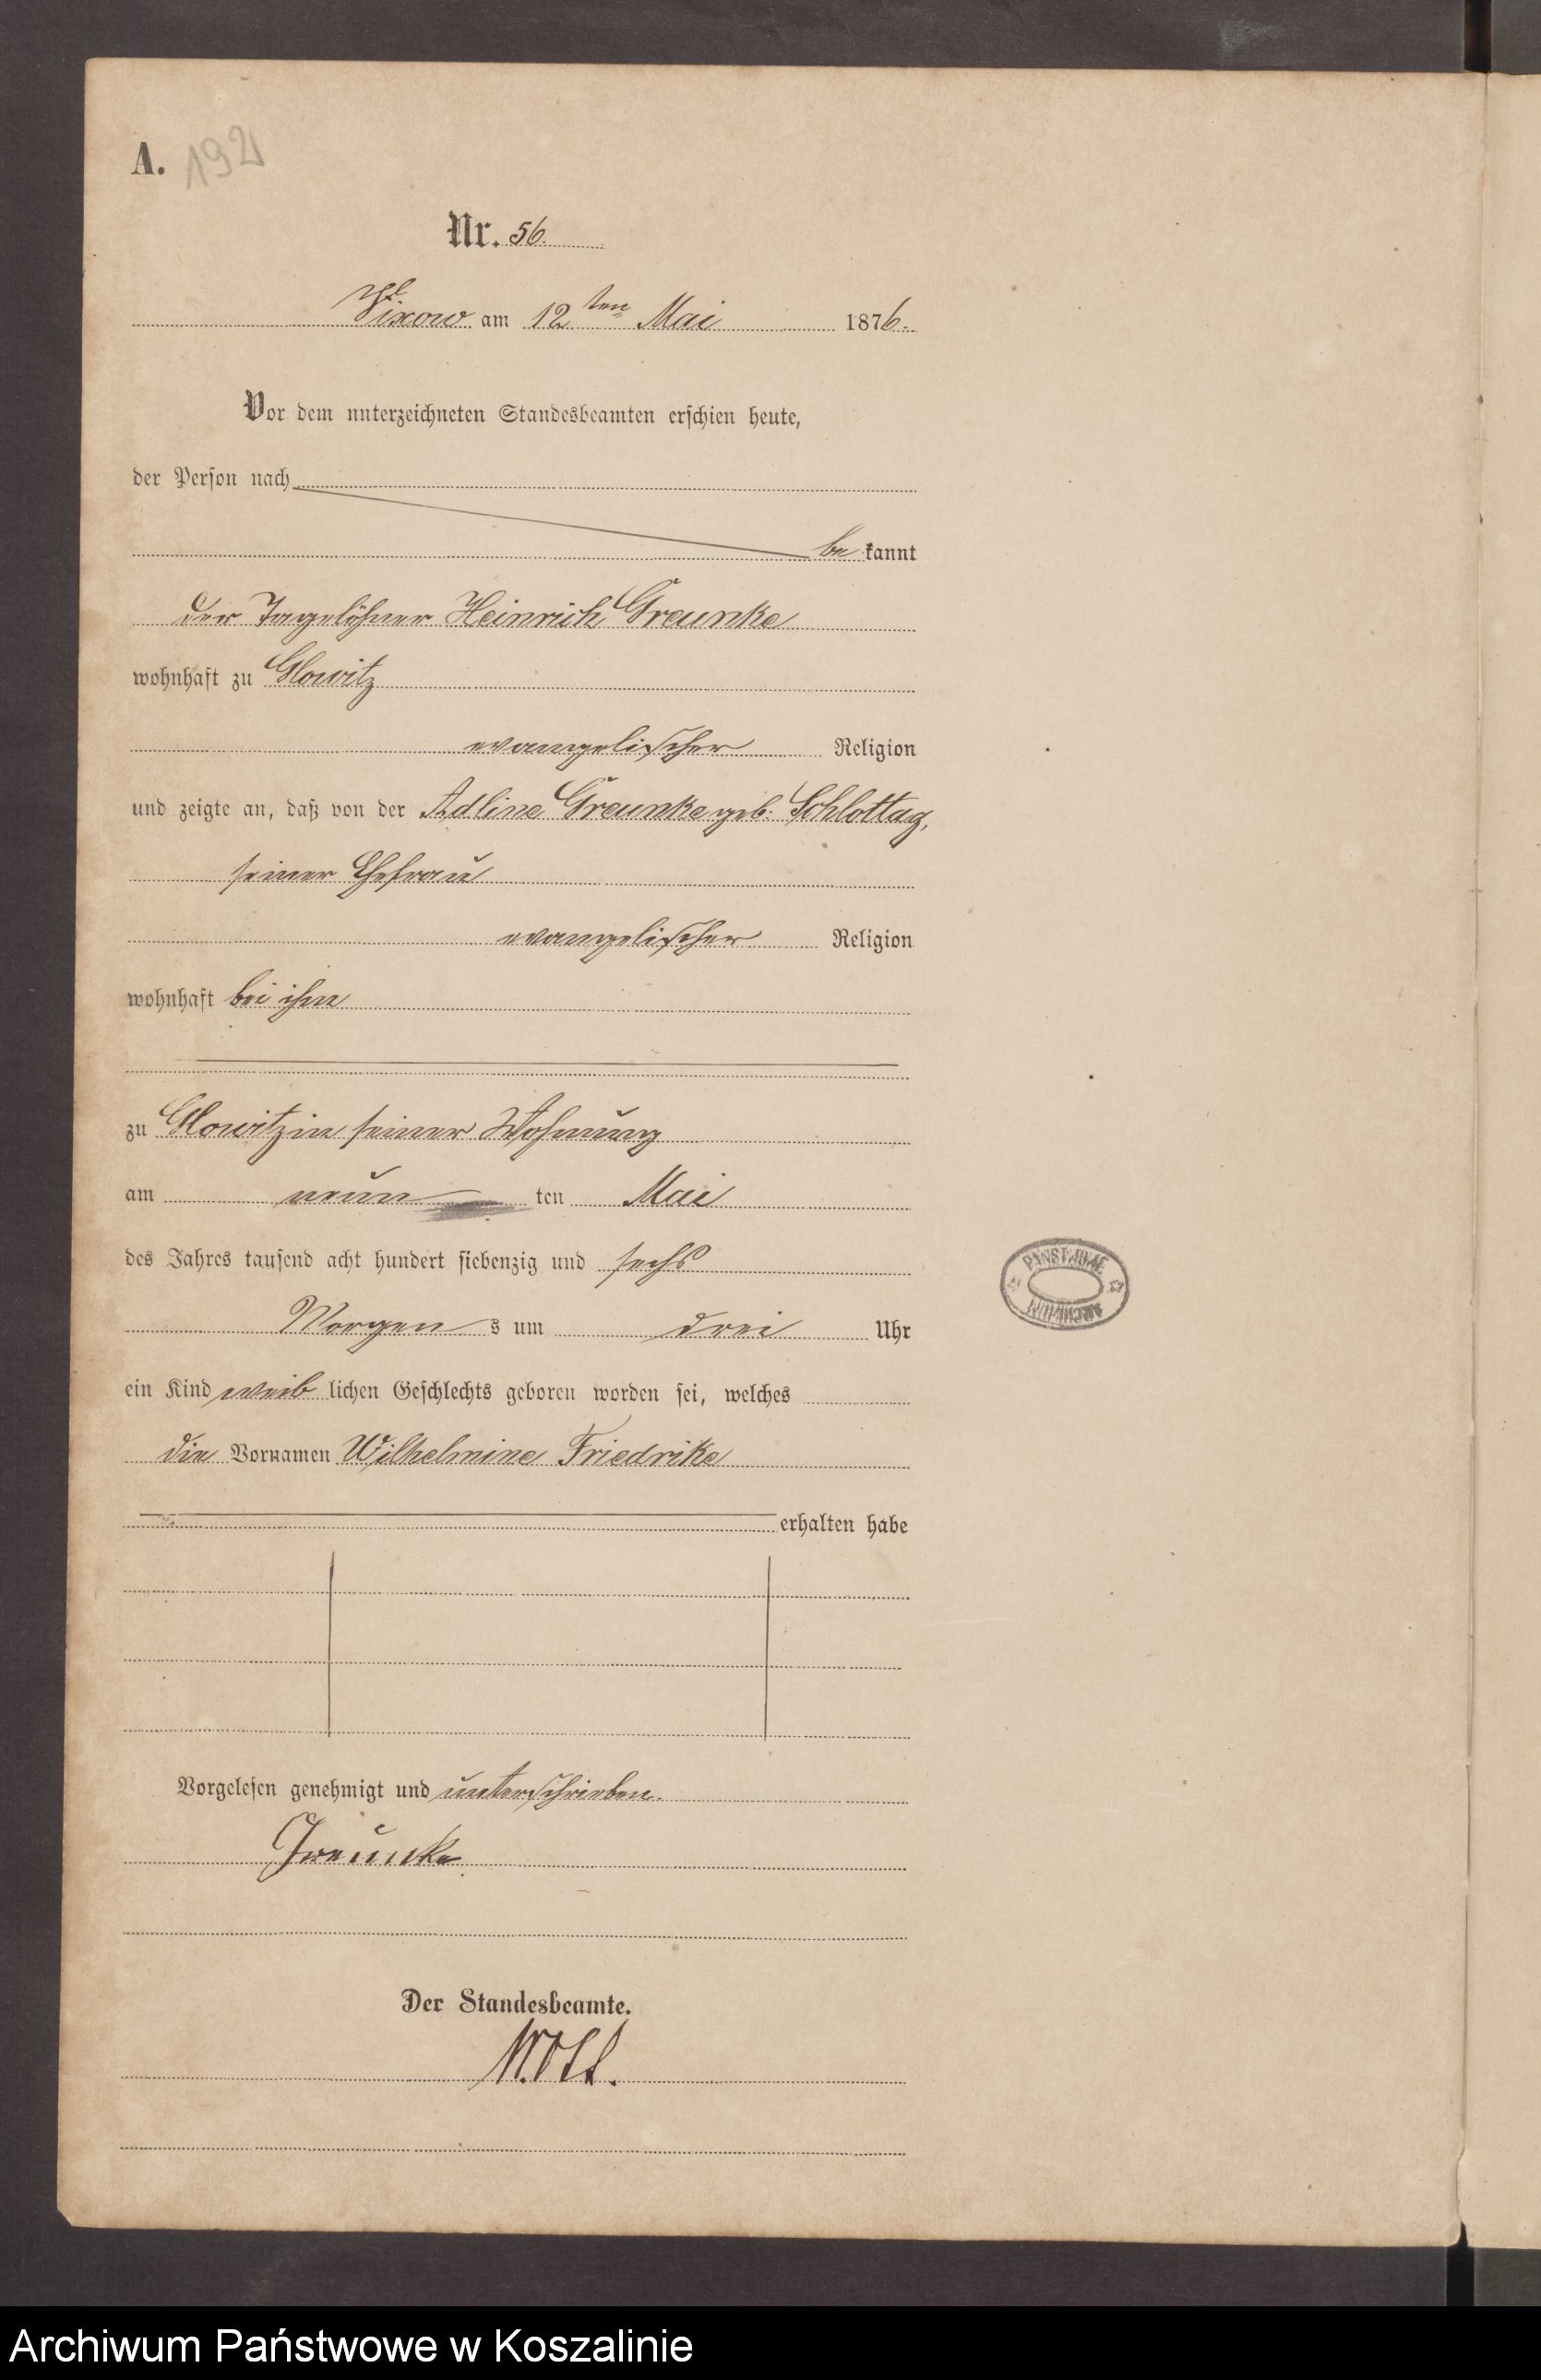 A. 192
Nr. 56.
Vixow am 12ten Mai 1876.
Vor dem unterzeichneten Standesbeamten erschien heute,
der Person nach
be kannt
der Tagelöhner Heinrich Greunke
wohnhaft zu Glowitz
evangelischer Religion
und zeigte an, daß von der Adline Greunke geb. Schlottag,
seiner Ehefrau
evangelischer Religion
wohnhaft bei ihm
zu Glowitz in seiner Wohnung
am neun ten Mai
des Jahres tausend acht hundert siebenzig und sechs
Morgen s um drei Uhr
ein Kind weib lichen Geschlechts geboren worden sei, welches
die Vornamen Wilhelmine Friedrike
erhalten habe
Vorgelesen genehmigt und unterschrieben.
Greunke
Der Standesbeamte.
PAŃSTWOWE
ARCHIWUM
Archiwum Państwowe w Koszalinie